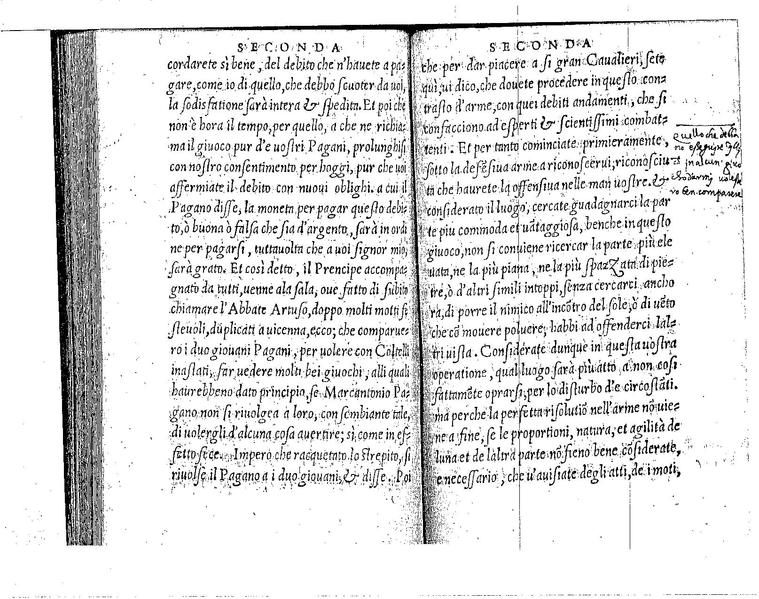 SECONDA
cordarete sì bene, del debito che n'hauete a pa-
gare, come io di quello, che debbo scuoter da uoi,
la sodisfatione sarà intera & spedita. Et poi che
non è hora il tempo, per quello, a che ne richia-
ma il giuoco pur d'e uostri Pagani, prolunghisi
con nostro consentimento per hoggi, pur che uoi
affermiate il debito con nuoui oblighi. a cui il
Pagano disse, la moneta per pagar questo debi-
to, ò buona ò falsa che sia d'argento, sarà in ordi
ne per pagarsi, tuttauolta che a uoi signor mio,
sarà grato. Et così detto, il Prencipe accompa-
gnato da tutti, uenne ala sala, oue fatto di subito
chiamare l'Abbate Artuso, doppo molti motti fe
steuoli, duplicati a uicenna, ecco; che comparue-
ro i duo giouani Pagani, per uolere con Coltelli
inastati, far uedere molti bei giuochi, alli quali
haurebbeno dato principio, se Marcantonio Pa-
gano non si riuolgea a loro, con sembiante tale,
di uolergli d'alcuna cosa auertire; sì come in ef-
fetto fece. Imperò che racquetato lo strepito, si
riuolse il Pagano a i duo giouani, & disse. Poi
SECONDA
che per dar piacere a si gran Caualieri, sete
quì; ui dico, che douete procedere in questo con-
trasto d'arme, con quei debiti andamenti, che si
confacciono ad esperti & scientissimi combat-
tenti. Et per tanto cominciate primieramente,
sotto la defēsiua arme a riconoscerui; riconosciu-
ta che haurete la offensiua nelle man uostre. &
considerato il luogo, cercate guadagnarci la par
te piu commoda et uātaggiosa, benche in questo
giuoco, non si conuiene ricercar la parte più ele
uata, ne la più piana, ne la più spazzata di pie-
tre, ò d'altri simili intoppi, senza cercarci ancho
ra, di porre il nimico all'incōtro del sole, ò di uēto
che cō mouere poluere, habbi ad offenderci l'al-
trui uista. Considerate dunque in questa uostra
operatione, qual luogo sarà più atto, a non così
fattamēte oprarsi, per lo disturbo d'e circostāti.
ma perche la perfetta risolutiō nell'arme nō uie-
ne a fine, se le proportioni, natura, et agilità de
l'una et de l'altra parte nō sieno bene cōsiderate,
e necessario, che u'auisiate degli atti, de i moti,
quello che della